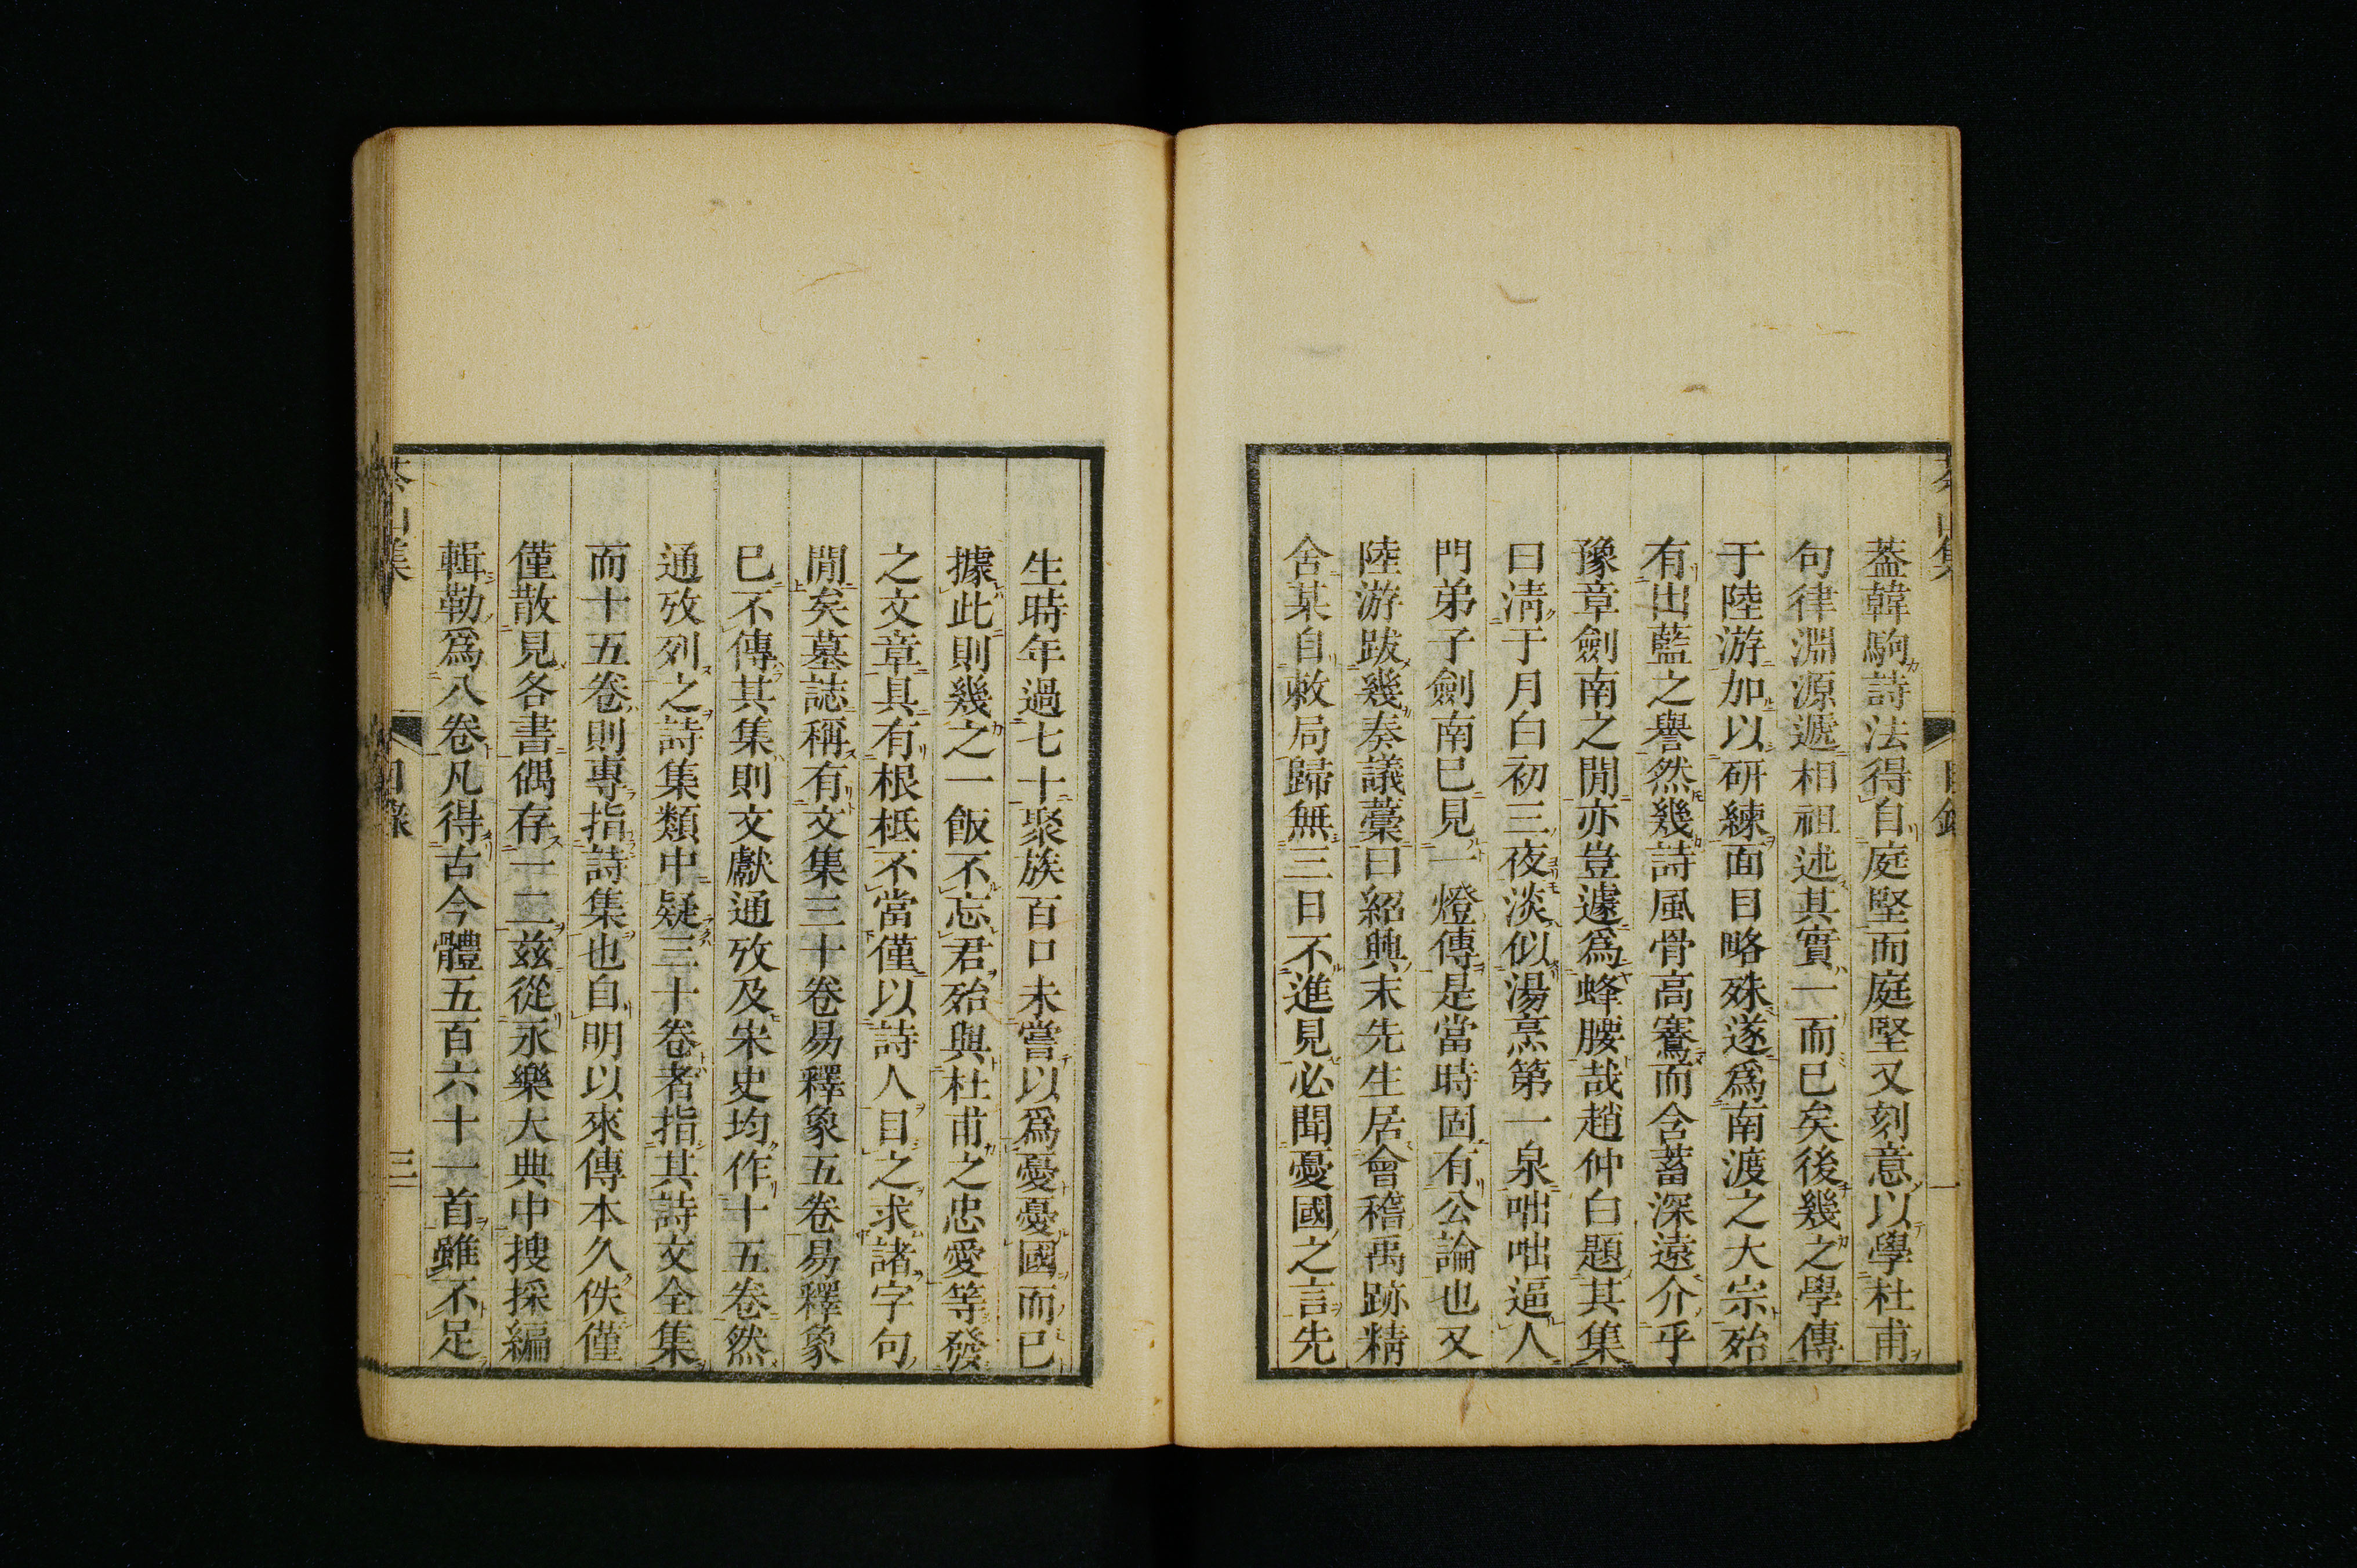 葢韓駒詩法得自庭堅而庭堅又刻意以學杜甫
句律淵源遞相祖述其實一而已矣後幾之學傳
于陸游加以研練面目略殊遂爲南渡之大宗殆
有出藍之譽然幾詩風骨高騫而含蓄深遠介乎
豫章劍南之閒亦豈遽爲蜂腰哉趙仲白題其集
曰淸于月白初三夜淡似湯烹第一泉咄咄逼人
門弟子劍南已見一燈傳是當時固有公論也又
陸游跋幾奏議藁曰紹興末先生居會稽禹跡精
舍某自敕局歸無三日不進見必聞憂國之言先
生時年過七十聚族百口未嘗以爲憂憂國而已
據此則幾之一飯不忘君殆與杜甫之忠愛等發
之文章具有根柢不當僅以詩人目之求諸字句
閒矣墓誌稱有文集三十卷易釋象五卷易釋象
已不傳其集則文獻通攷及宋史均作十五卷然
通攷列之詩集類中疑三十卷者指其詩文全集
而十五卷則專指詩集也自明以來傳本久佚僅
僅散見各書偶存一二茲從永樂大典中搜採編
輯勒爲八卷凡得古今體五百六十一首雖不足
三